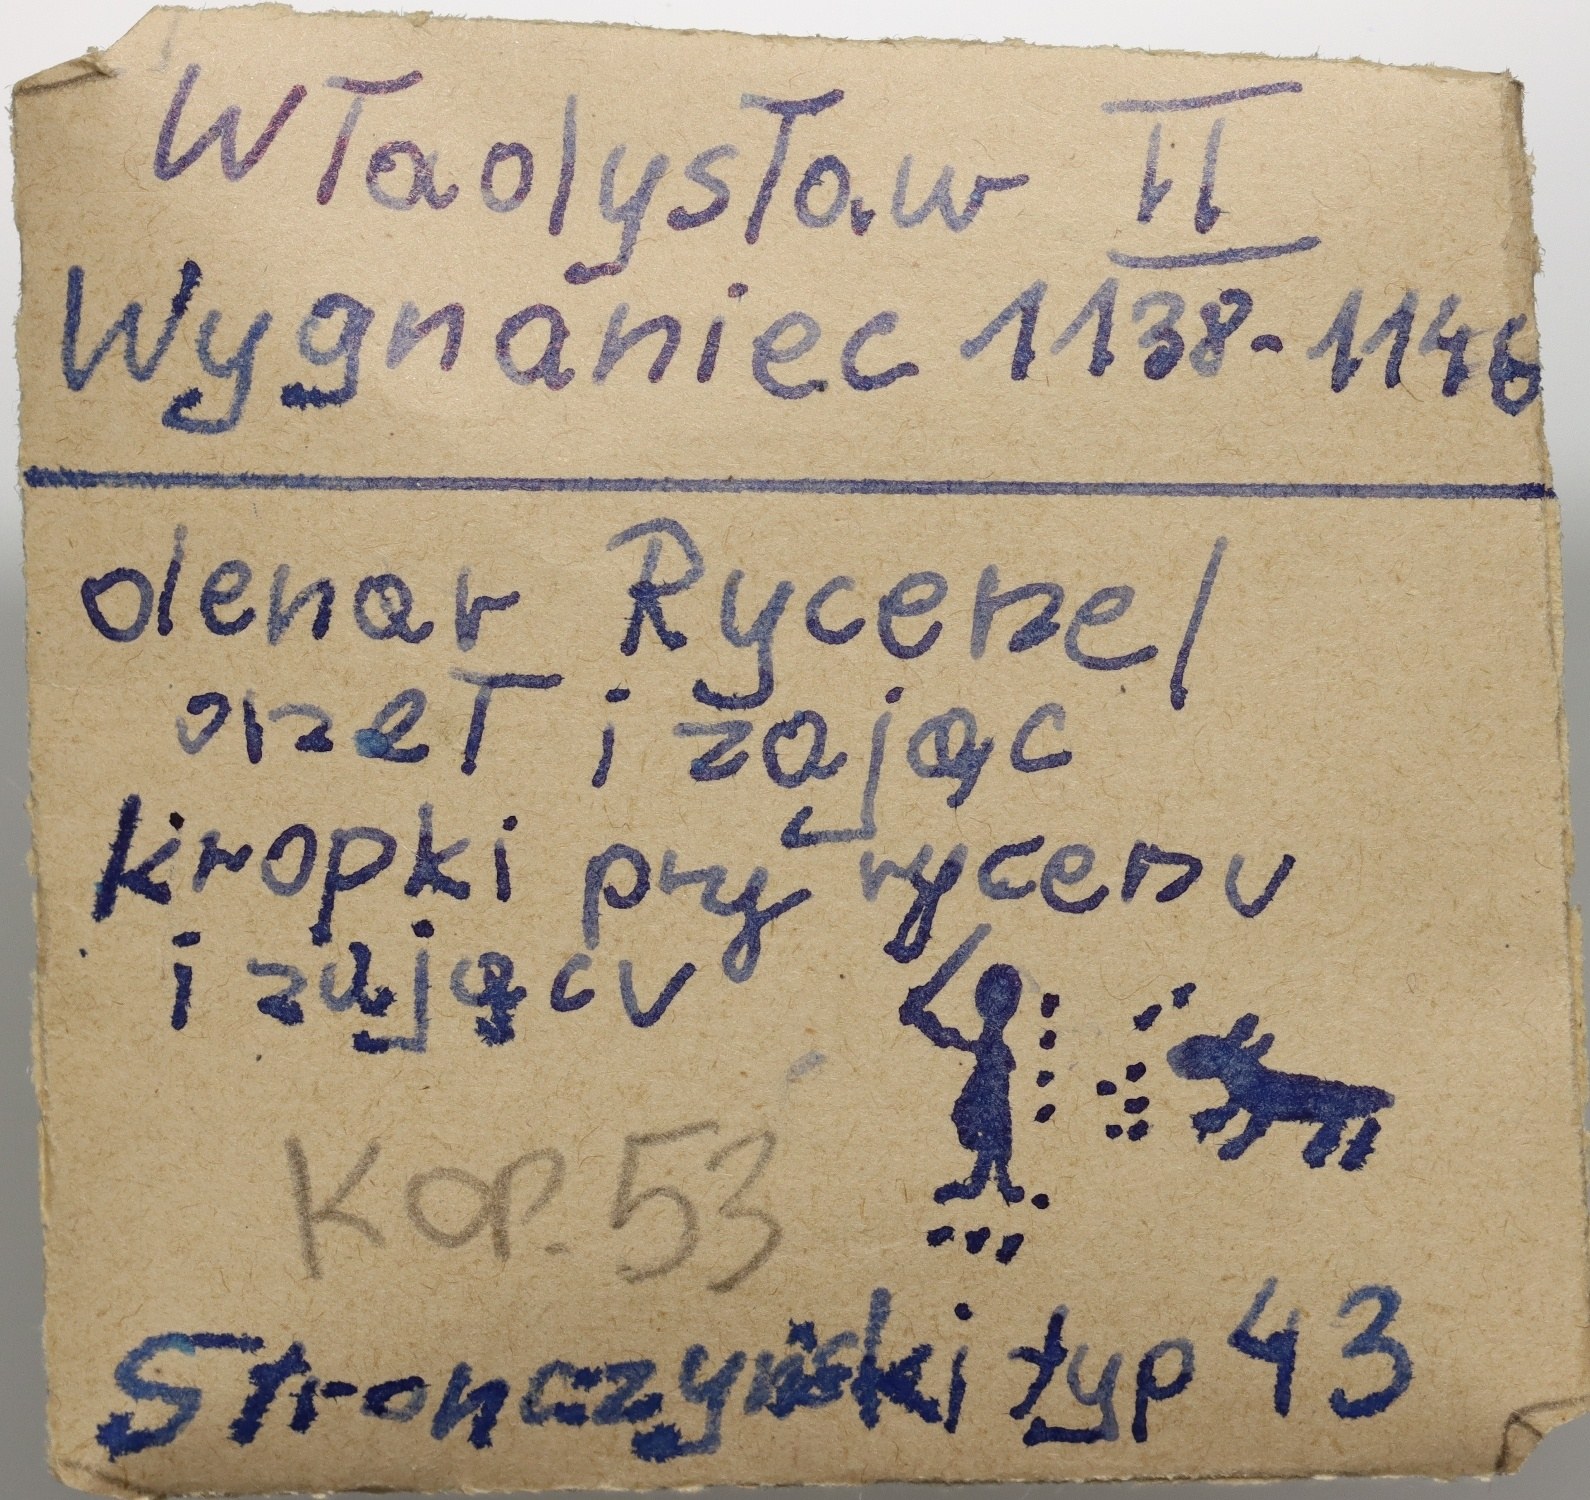 Władysław II
Wygnaniec 1138-1146
denar Rycerze/
orzeł i zając
kropki przy rycerzu
i zającu
Kop. 53
Stronczyński typ 43